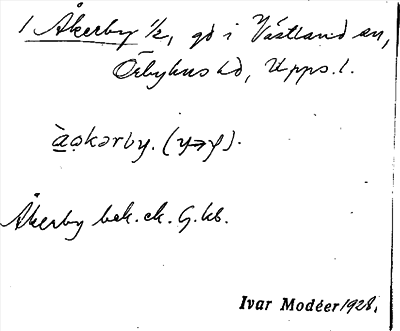 1 Åkerby ½, gd i Västland sn,
Örbyhus hd, Upps. l.
àọkərby. (y⇒y).
Åkerby bek. ek. G. kb.
Ivar Modéer 1928.